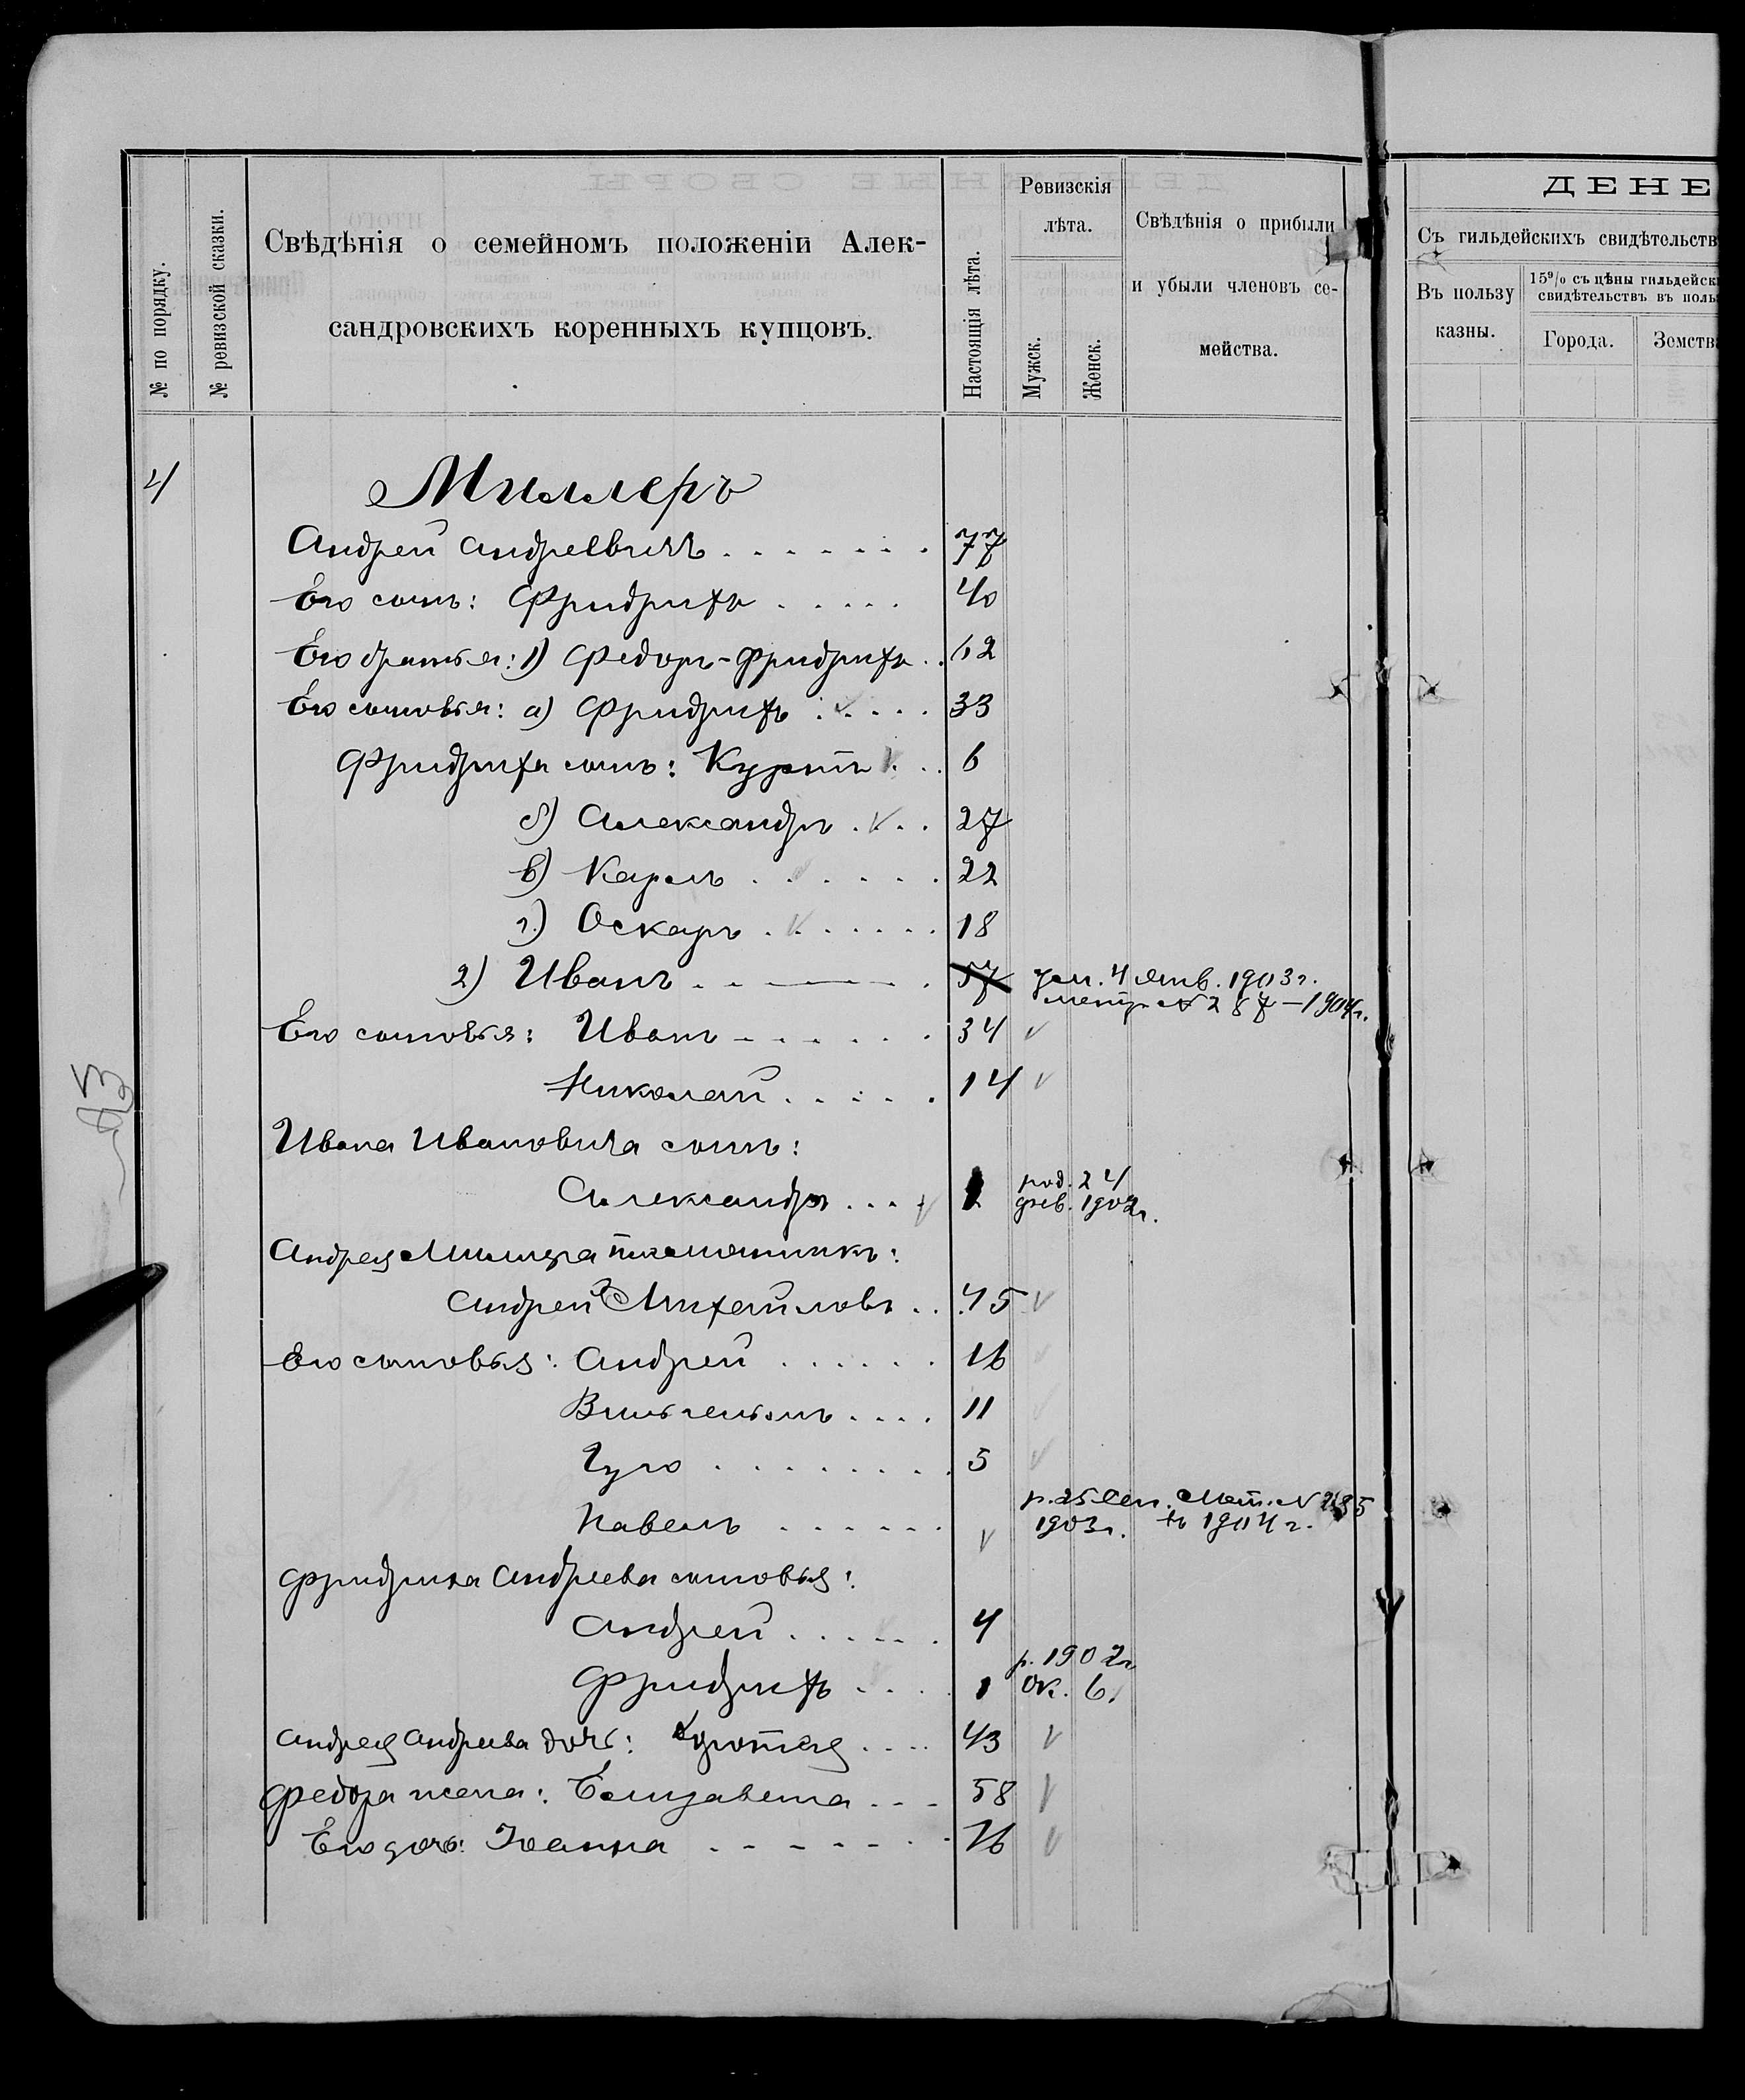 № по порядку.
№ ревизской сказки.
Свѣдѣнія о семейномъ положеніи Алек-
сандровскихъ коренныхъ купцовъ.
Настоящія лѣта.
Ревизскія
лѣта.
Мужск.
Женск.
Свѣдѣнія о прибыли
и убыли членовъ се-
мейства.
ДЕНЕ
Съ гильдейскихъ свидѣтельств
Въ пользу
казны.
15% съ цѣны гильдейск
свидѣтельствъ въ поль
Города.
Земств
4 Миллеръ
Андрей Андреевичъ . . . . . . . 77
Его сынъ: Фридрихъ . . . . . 40
Его братья: 1) Федоръ-Фридрихъ . . 62
Его сыновья: а) Фридрихъ . . . . . 33
Фридриха сынъ: Куртъ . . . 6
б) Александръ . . . 27
в) Карлъ . . . . . . 22
г.) Оскаръ . . . . . . . 18
2) Иванъ . . . . 57 ум. 4 Янв. 1903 г.
метр. № 287 – 1904 г.
Его сыновья: Иванъ . . . . . . 34
Николай . . . . . 14
Ивана Ивановича сынъ:
Александръ . . . род. 24
фев. 1902 г.
Андрея Миллера племянникъ:
Андрей Михайловъ . . 45
Его сыновья: Андрей . . . . . . 16
Вильгельмъ . . . . 11
Гуго . . . . . . . . 5
Павелъ . . . . . . р. 25 Сен. Мет. № 285
1903 г. 1904 г.
Фридриха Андреева сыновья:
Андрей . . . . . 4
р. 1902 г.
Фридрихъ . . . . 1 Ок. 6.
Андрея Андреева дочь: . . . . 43
Федора жена: Елизавета . . . 58
Его дочь: Иоанна . . . . . . . 16